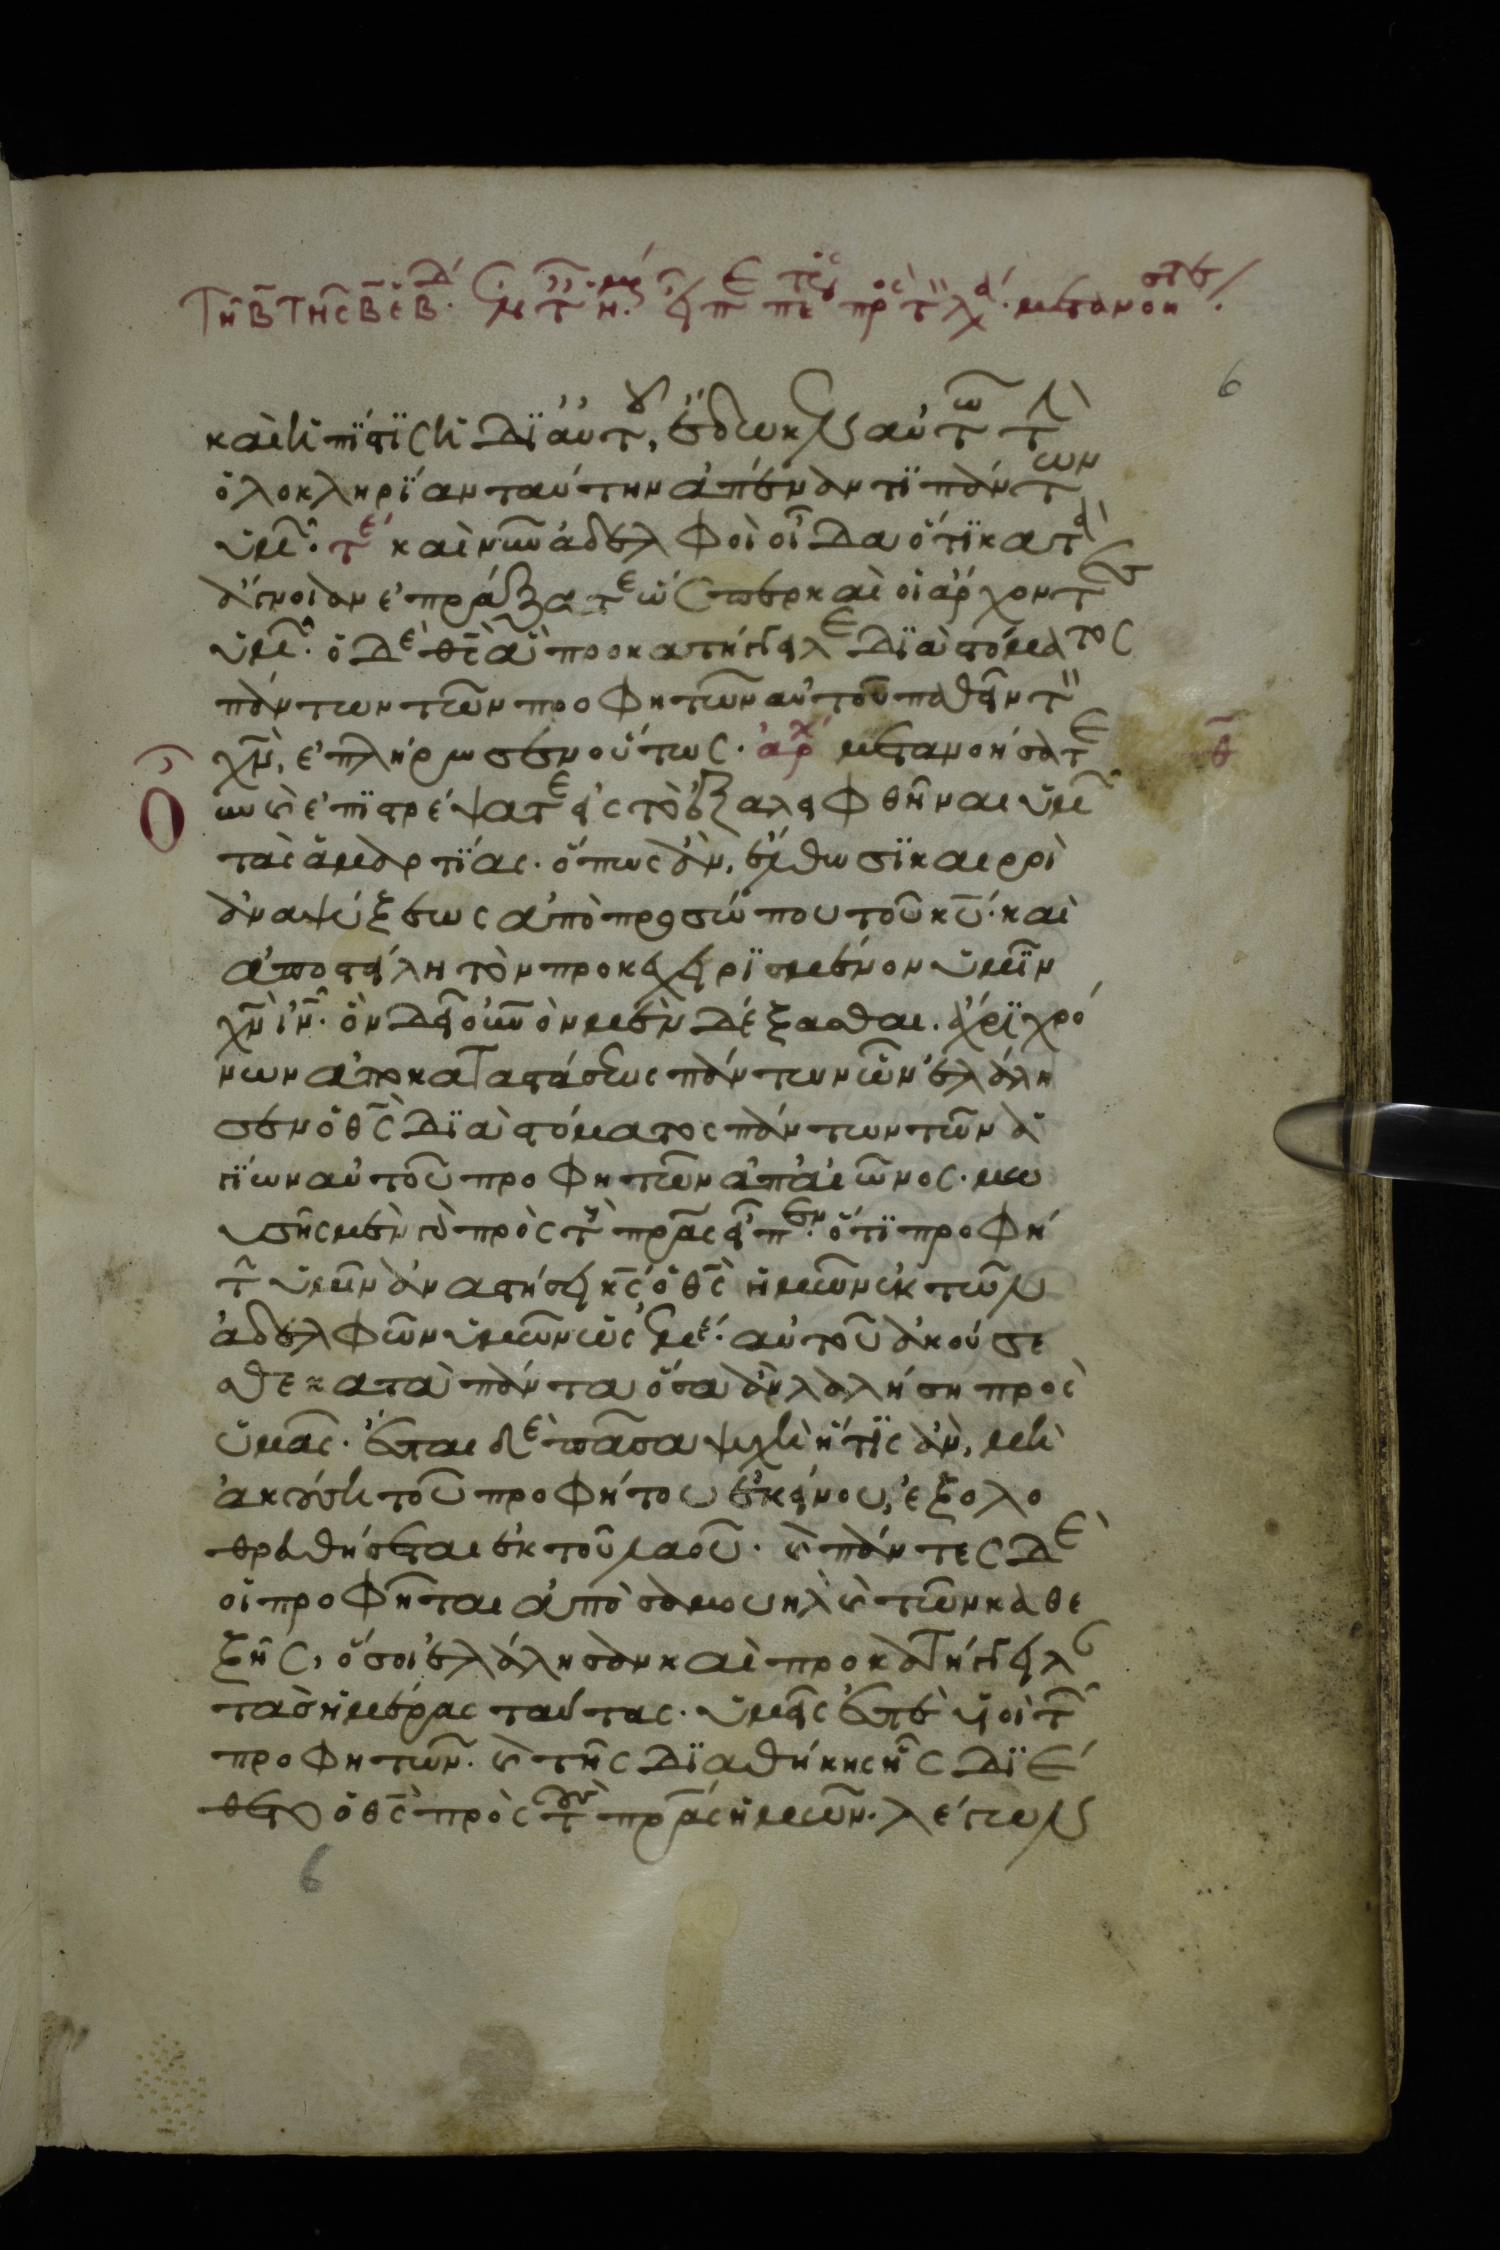 Τῆ Β τῆς Β ἑβδ. ἐν τ ἡμ. εἶπε πέτρος πρὸς τ λα. μετανοησατε
6
καὶ ἡ πίστις ἡ δι αὐτου, ἔδωκεν αὐτῶ τὴν
ὁλοκληρίαν ταύτην ἀπέναντι πάντων
ὑμῶν. τε καὶ νῦν ἀδελφοὶ οἶδα ὅτι κατὰ
ἄγνοιαν ἐπράξατε ὥσπερ καὶ οἱ ἄρχοντες
ὑμῶν. ὁ δὲ θς ἃ προκατήγγειλε διὰ στόματος
πάντων τῶν προφητῶν αὐτοῦ παθεῖν τὸν
χν, ἐπλήρωσεν οὕτως. ἀρχ μετανοήσατε
οὖν καὶ ἐπιστρέψατε εἰς τὸ ἐξαλειφθῆναι ὑμῶν
τὰς ἁμαρτίας. ὅπως ἂν, ἔλθωσι καιροὶ
ἀναψύξεως ἀπὸ προσώπου τοῦ κυ. καὶ
ἀποστείλη τὸν προκεχειρισμένον ὑμῖν
χν ιν. ὃν δεῖ οὐνὸν μὲν δέξασθαι. ἄχρι χρό
νων ἀποκαταστάσεως πάντων ὧν ἐλάλη
σεν ὁ θς διὰ στόματος πάντων τῶν ἁ
γίων αὐτοῦ προφητῶν ἀπ αἰῶνος. μω
υσῆς μὲν γὰρ πρὸς τοὺς πρας εἶπεν. ὅτι προφή
την ὑμῖν ἀναστήσει κς ὁ θς ἡμῶν ἐκ τῶν
ἀδελφῶν ὑμῶν ὡς ἐμέ. αὐτοῦ ἀκούσε
σθε κατὰ πάντα ὅσα ἂν λαλήση πρὸς
ὑμᾶς. ἔσται δὲ πᾶσα ψυχὴ ἥτις ἂν, μὴ
ἀκούση τοῦ προφήτου ἐκείνου, ἐξολο
θρευθήσεται ἐκ τοῦ λαοῦ. καὶ πάντες δὲ
οἱ προφῆται ἀπὸ σαμουηλ καὶ τῶν καθε
ξῆς, ὅσοι ἐλάλησαν καὶ προκατήγγειλαν
τὰς ἡμέρας ταύτας. ὑμεῖς ἐστὲ υἱοὶ τῶν
προφητῶν. καὶ τῆς διαθήκης ἧς διέ
θετο ὁ θς πρὸς τοὺς πρας ἡμῶν. λέγων
6